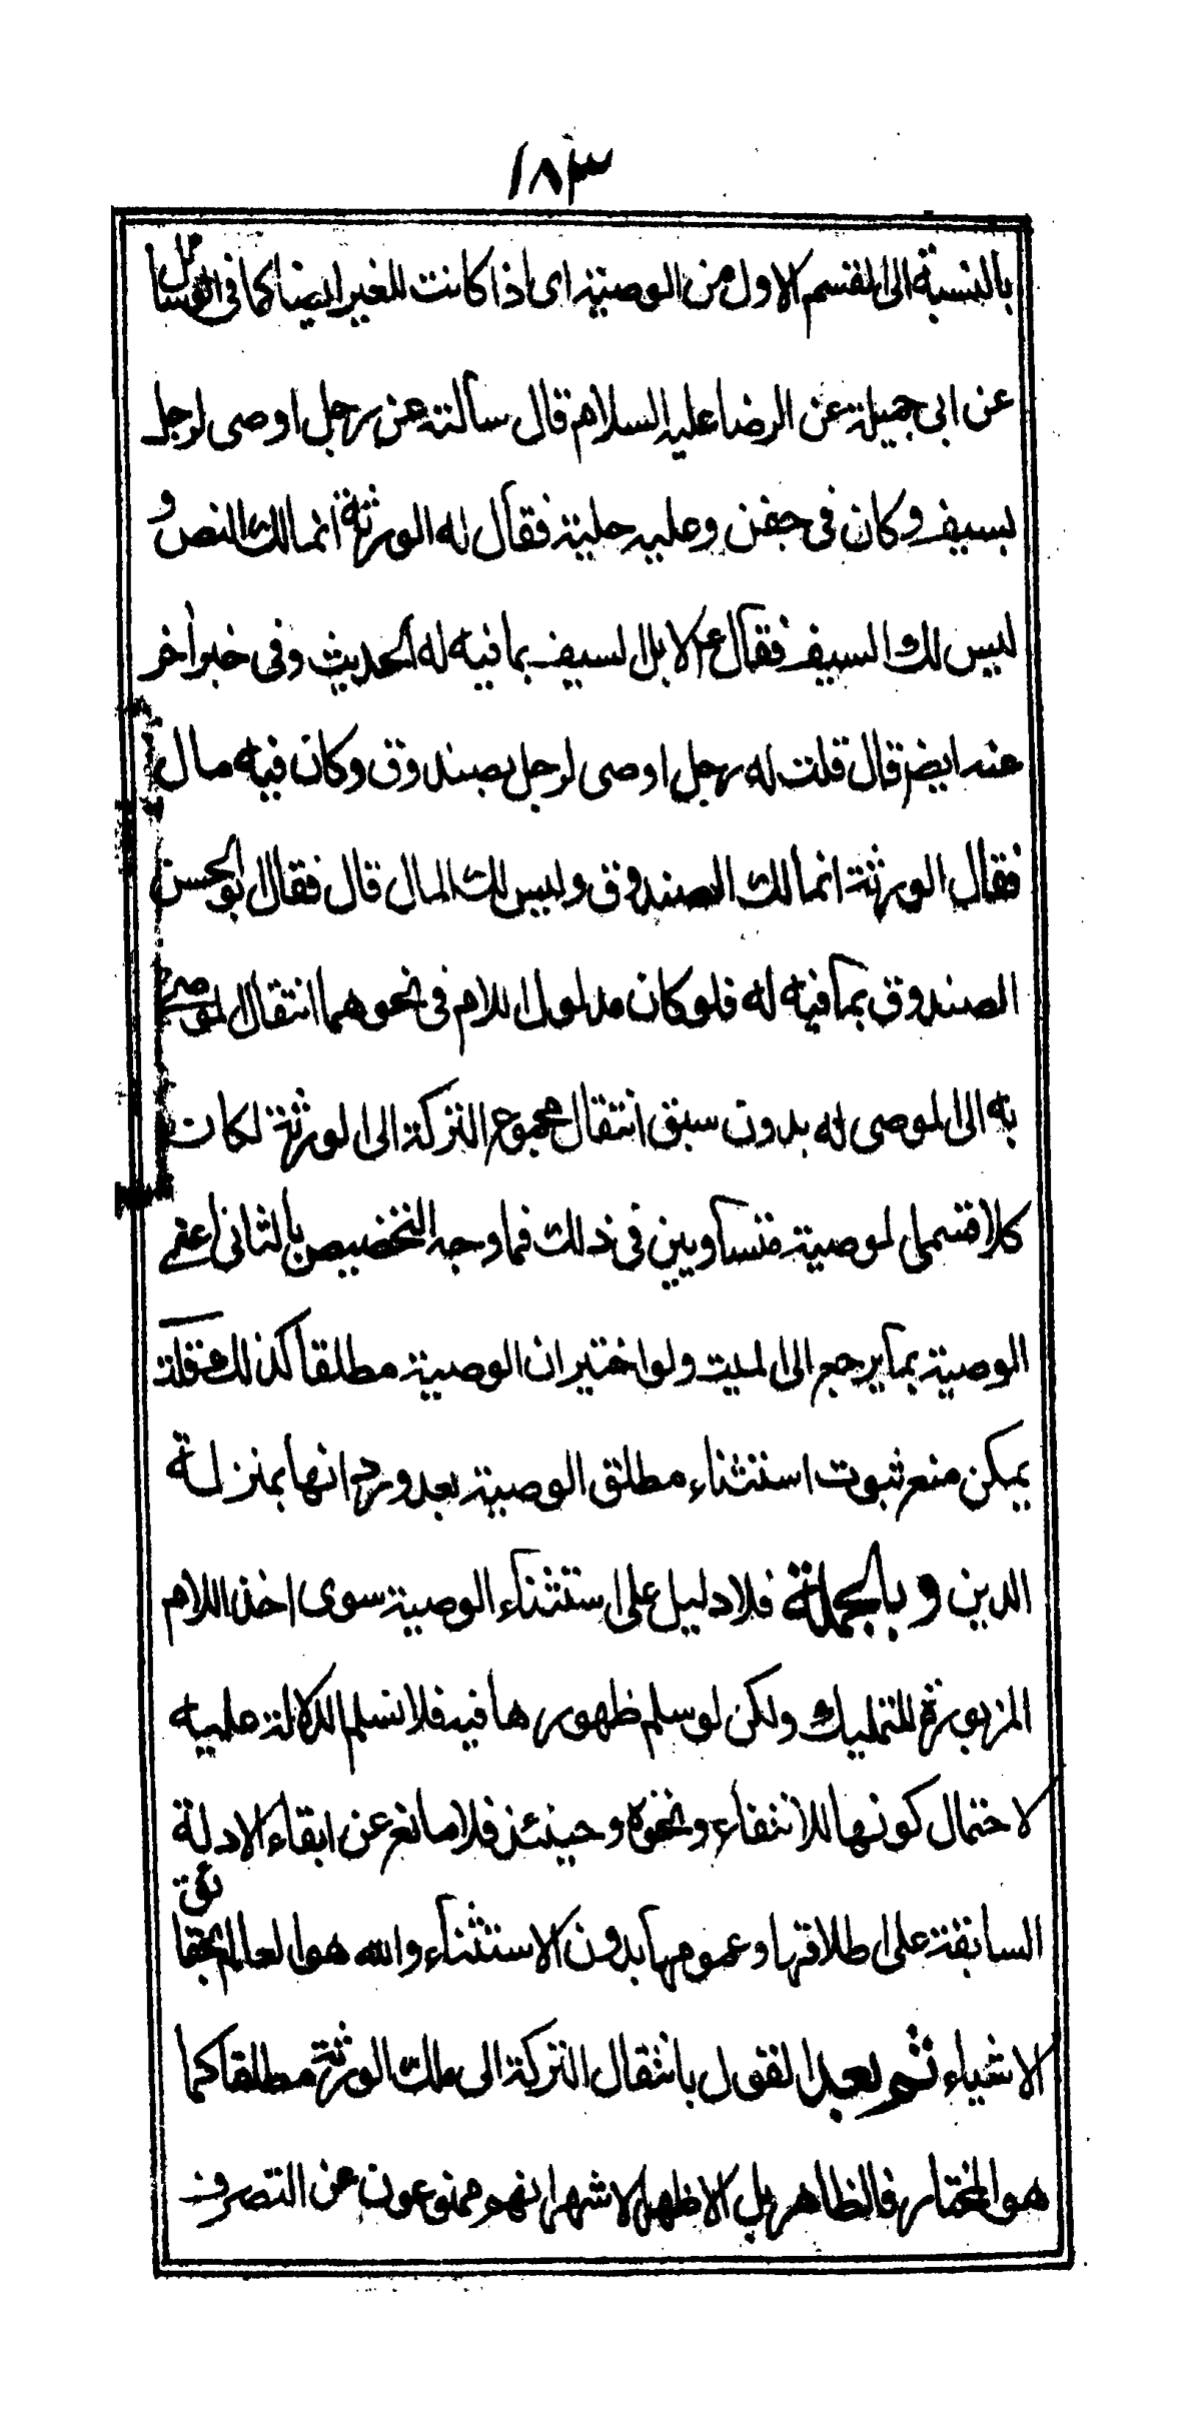 ١٨٣
بالنسبة الى القسم الاول من الوصية اى اذا كانت للغير ايضا كما فى الوسائل
عن ابى جميلة عن الرضا عليه السلام قال سألته عن رجل اوصى لرجل
بسيف وكان فى جفن وعليه حلية فقال له الورثة انما لك النصل و
ليس لك السيف فقال ع لا بل السيف بما فيه له الحديث وفى خبر اخر
عنه ايضا قال قلت له رجل اوصى لرجل بصندوق وكان فيه مال
فقال الورثة انما لك الصندوق وليس لك المال قال فقال ابو الحسن
الصندوق بما فيه له فلو كان مدلول اللام فى نحو هما انتقال الموصى
به الى الموصى له بدون سبق انتقال مجموع التركة الى الورثة لكان
كلا قسمى الوصية متساويين فى ذلك فما وجه التخصيص بالثانى اعنى
الوصية بما يرجع الى الميت ولو اختير ان الوصية مطلقا كذلك قلت
يمكن منع ثبوت استثناء مطلق الوصية بعد ورود انها بمنزلة
الدين وبالجملة فلا دليل على استثناء الوصية سوى اخذ اللام
المزبورة للتمليك ولكن لو سلم ظهورها فيه فلا نسلم الدلالة عليه
لاحتمال كونها للانتفاع ونحوه وحينئذ فلا مانع عن ابقاء الادلة
السابقة على اطلاقها وعمومها بدون الاستثناء والله هو العالم بحقائق
الاشياء ثم بعد القول بانتقال التركة الى ملك الورثة مطلقا كما
هو المختار فالظاهر بل الاظهر الاشهر انهم ممنوعون عن التصرف